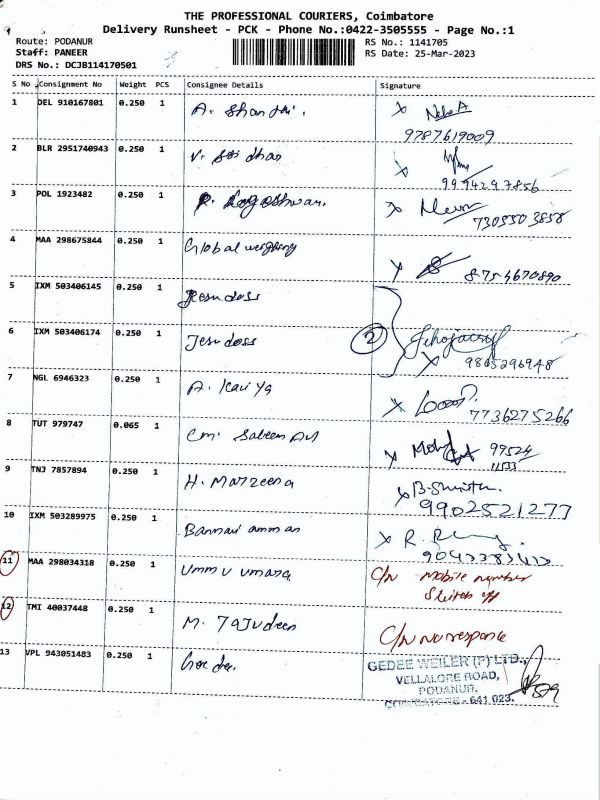 THE PROFESSIONAL COURIERS, Coimbatore
Delivery Runsheet - PCK - Phone No.:0422-3505555 - Page No.:1
Route: PODANUR
RS No.: 1141705
Staff: PANEER
RS Date: 25-Mar-2023
DRS No.: DCJB114170501
S No Consignment No Weight PCS Consignee Details Signature
1 DEL 910167801 0.250 1 A. Shanthi. X
9787619009
2 BLR 2951740943 0.250 1 V. Sridhar X
9994297856
3 POL 1923482 0.250 1 X
7305503858
4 MAA 298675844 0.250 1 Global weighing
X 8754670890
5 IXM 503406145 0.250 1 Jesudoss
6 IXM 503406174 0.250 1 Jesudoss 2
X 9865296948
7 NGL 6946323 0.250 1 A. Kaviya
X 7736275266
8 TUT 979747 0.065 1
X 97524
9 TNJ 7857894 0.250 1 H. Marzeena
X B.
9902521277
10 IXM 503289975 0.250 1 Bannari amman
X R.
11 MAA 298034318 0.250 1 Ummu umara C/N mobile number
Switch off
12 TMI 40037448 0.250 1 M. Tajudeen
C/N no response
13 VPL 943051483 0.250 1
GEDEE WEILER (P) LTD.,
VELLALORE ROAD,
PODANUR,
COIMBATORE - 641 023.